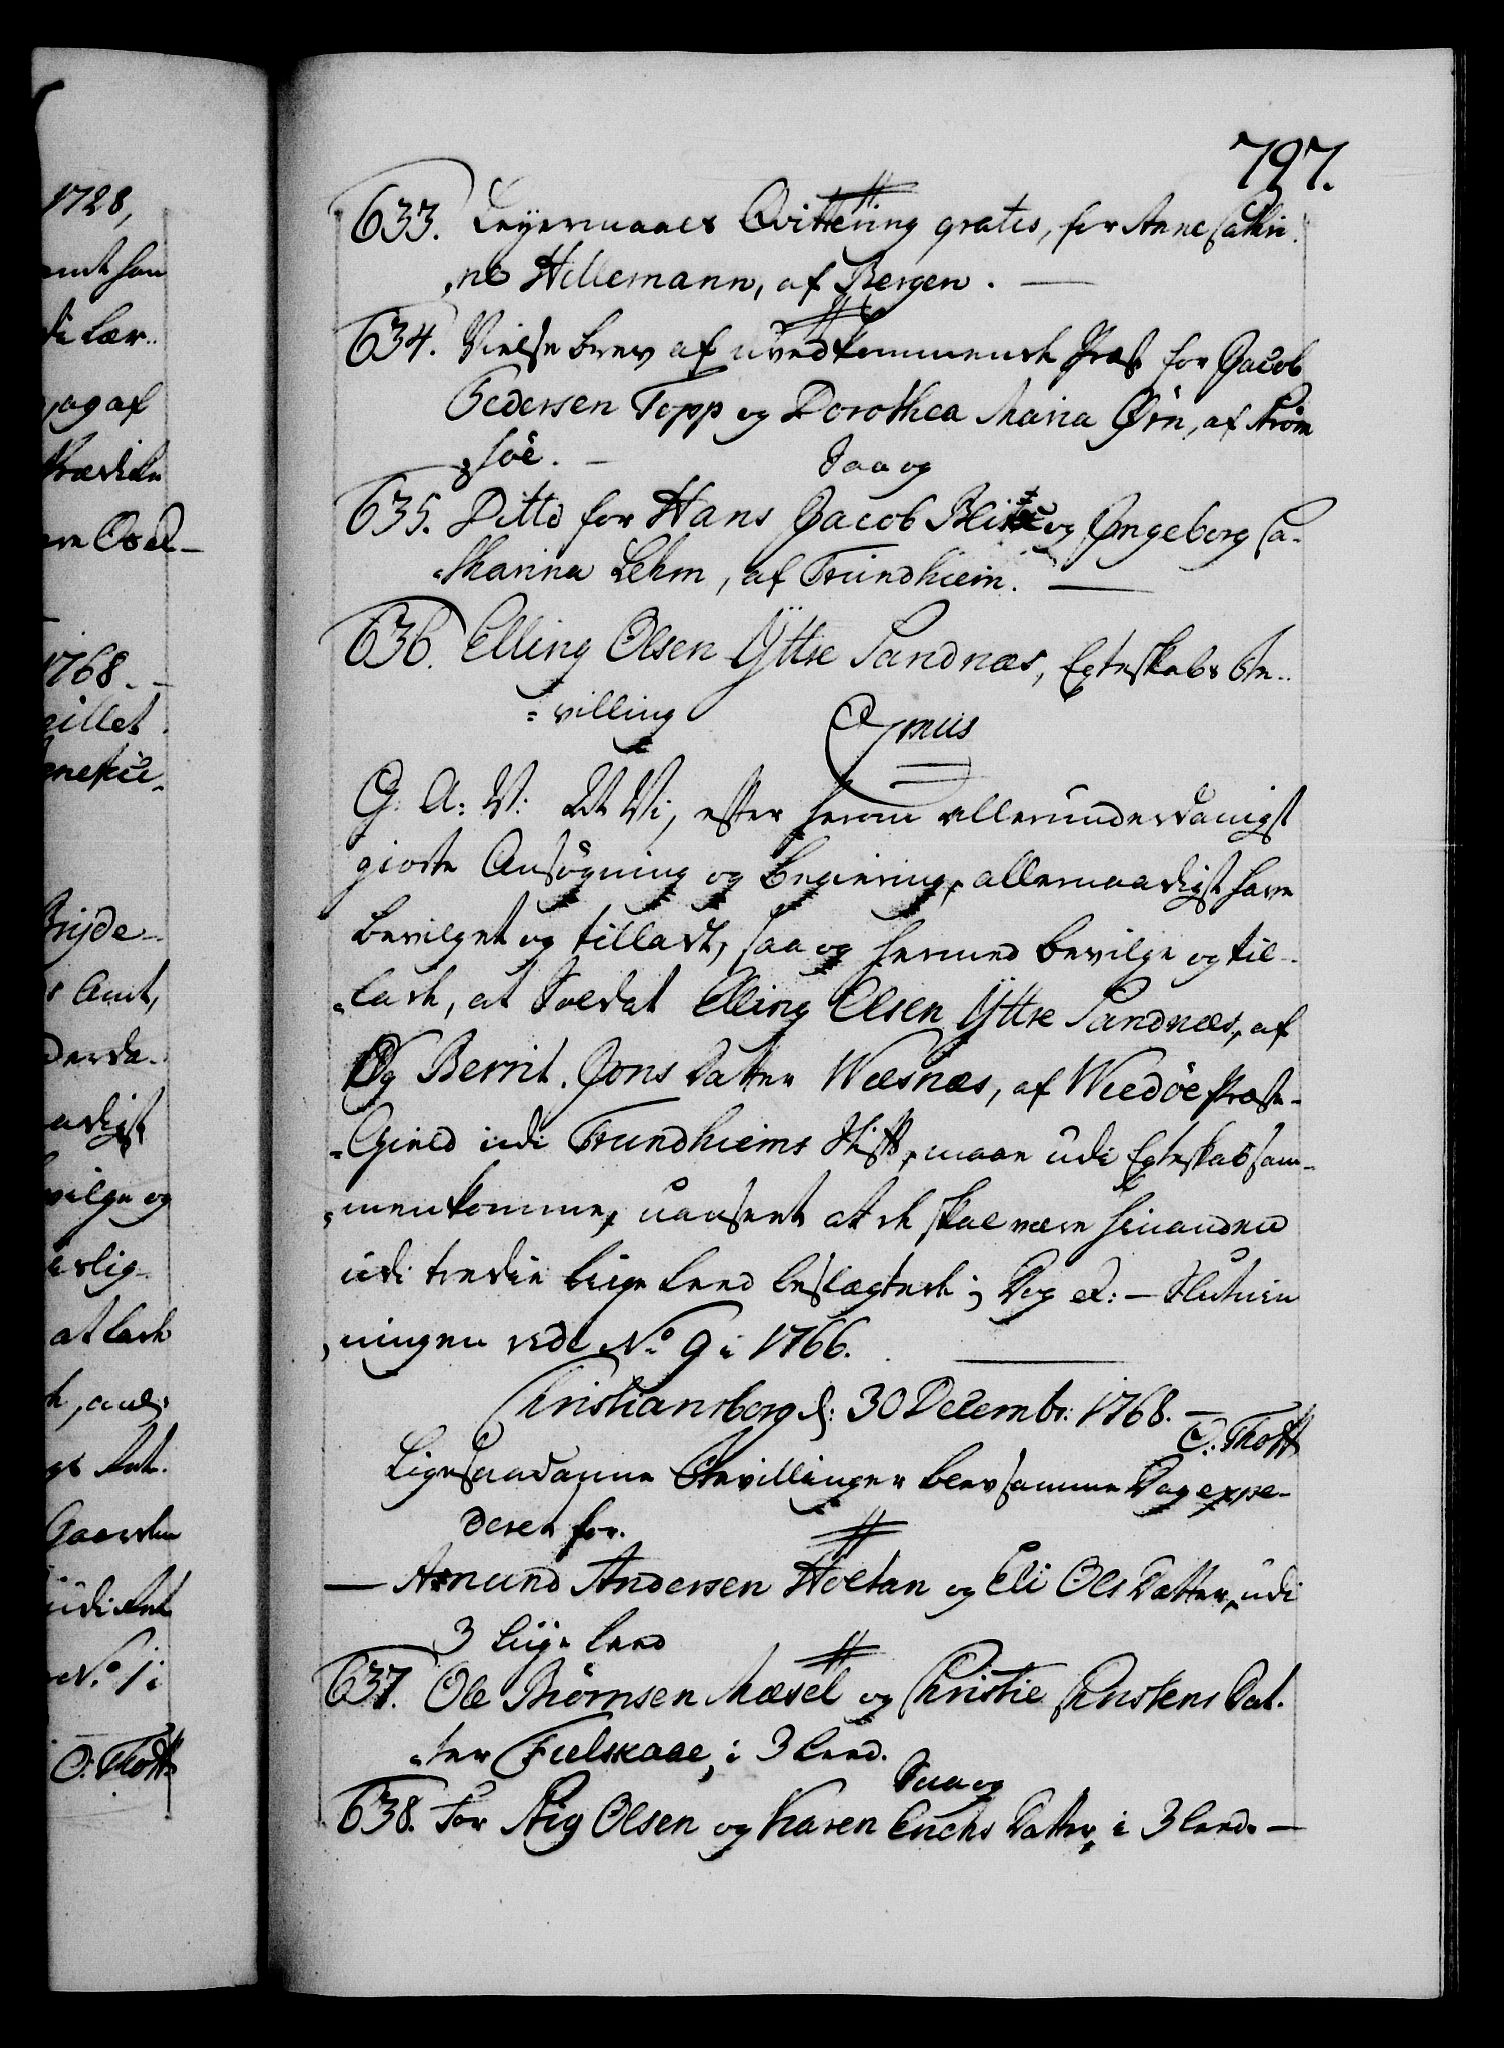 797.
633. Leyermaals Qvittering gratis, for Anne Cathri-
ne Hillemann, af Bergen. —
634. Vielse brev af uvedkommende Præst for Jacob
Pedersen Topp og Dorothea Maria Ørn, af Strøm
søe. —
Saa og
635. Ditto for Hans Jacob og Ingeborg Ca-
tharina Lehm, af Trundhiem. —
636. Elling Olsen Yttre Sandnæs, Egteskabs Be-
villing
C7mus
G. A: V: At Vi, efter herom allerunderdanigst
giorte Ansøgning og Begiering, allernaadigst have
bevilget og tilladt, saa og hermed bevilge og til-
lade, at Soldat Elling Olsen Yttre Sandnæs, af
Og Berrit Jons Datter Wæsnæs, af Wedøe Præste-
Gield udi Trundhiems Stift, maae udi Egteskab sam-
menkomme, uanseet at de skal være hinanden
udi tredie Liige Leed beslægtede; Dog et: — Slutnin
ningen vide No. 9 i 1766.
Christiansborg d: 30 Decembr: 1768. —
O. Thott
Ligesaadanne Bevillinger blev samme Dag expe-
deret for.
— Asmund Andersen Holtan og Eli Ols Datter, udi
3 liige leed
637. Ole Biørnsen Mæsel og Christie Christens Dat-
ter Fielskaae, i 3 Leed.
Saa og
638. For Stig Olsen og Karen Erichs Datter, i 3 Leed. —
1728,
1768. —
O. Thott